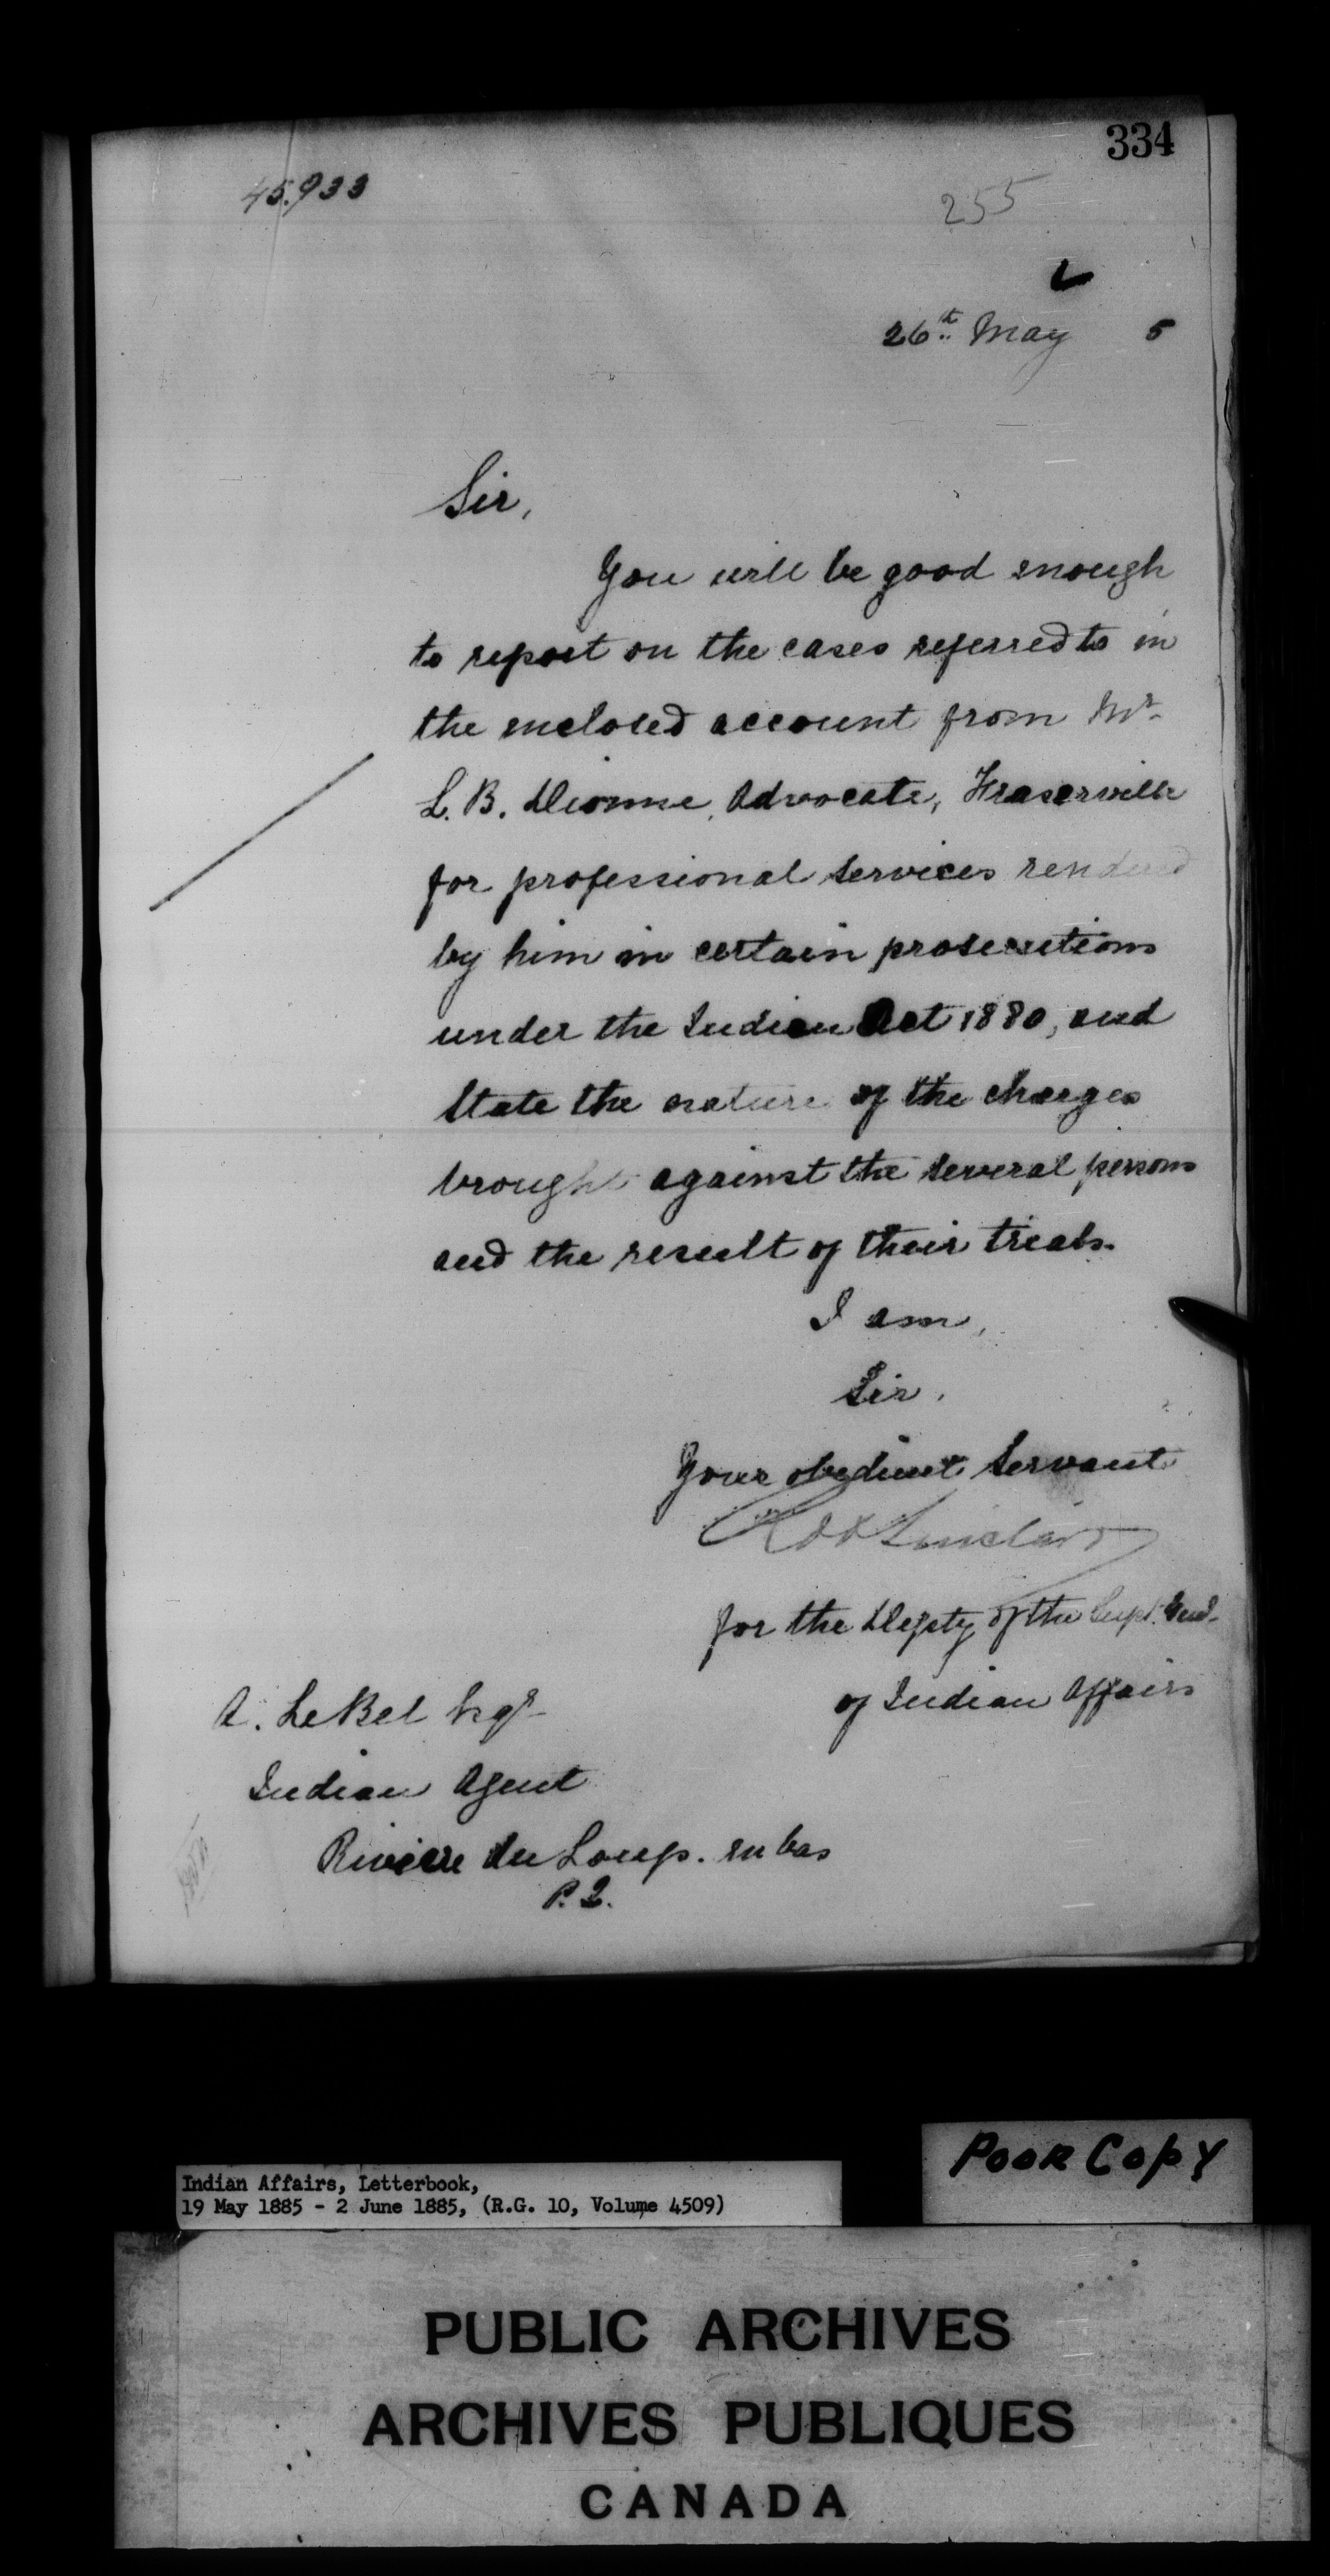 334
45.933
255
26th May 5
Sir,
You will be good enough
to report on the cases referred to in
the enclosed account from Mr
L. B. Dionne, Advocate, Fraserville
for professional services rendered
by him in certain prosecutions
under the Indian Act 1880, and
state the nature of the charges
brought against the several persons
and the result of their trials.
I am,
Sir,
Your obedient servant
Sinclair
for the Depty of the Supt. Genl.
of Indian Affairs
A. LeBel Esqr
Indian Agent
Riviere du Loup. en bas
P.Q.
Poor Copy
Indian Affairs, Letterbook,
19 May 1885 - 2 June 1885, (R.G. 10, Volume 4509)
PUBLIC ARCHIVES
ARCHIVES PUBLIQUES
CANADA